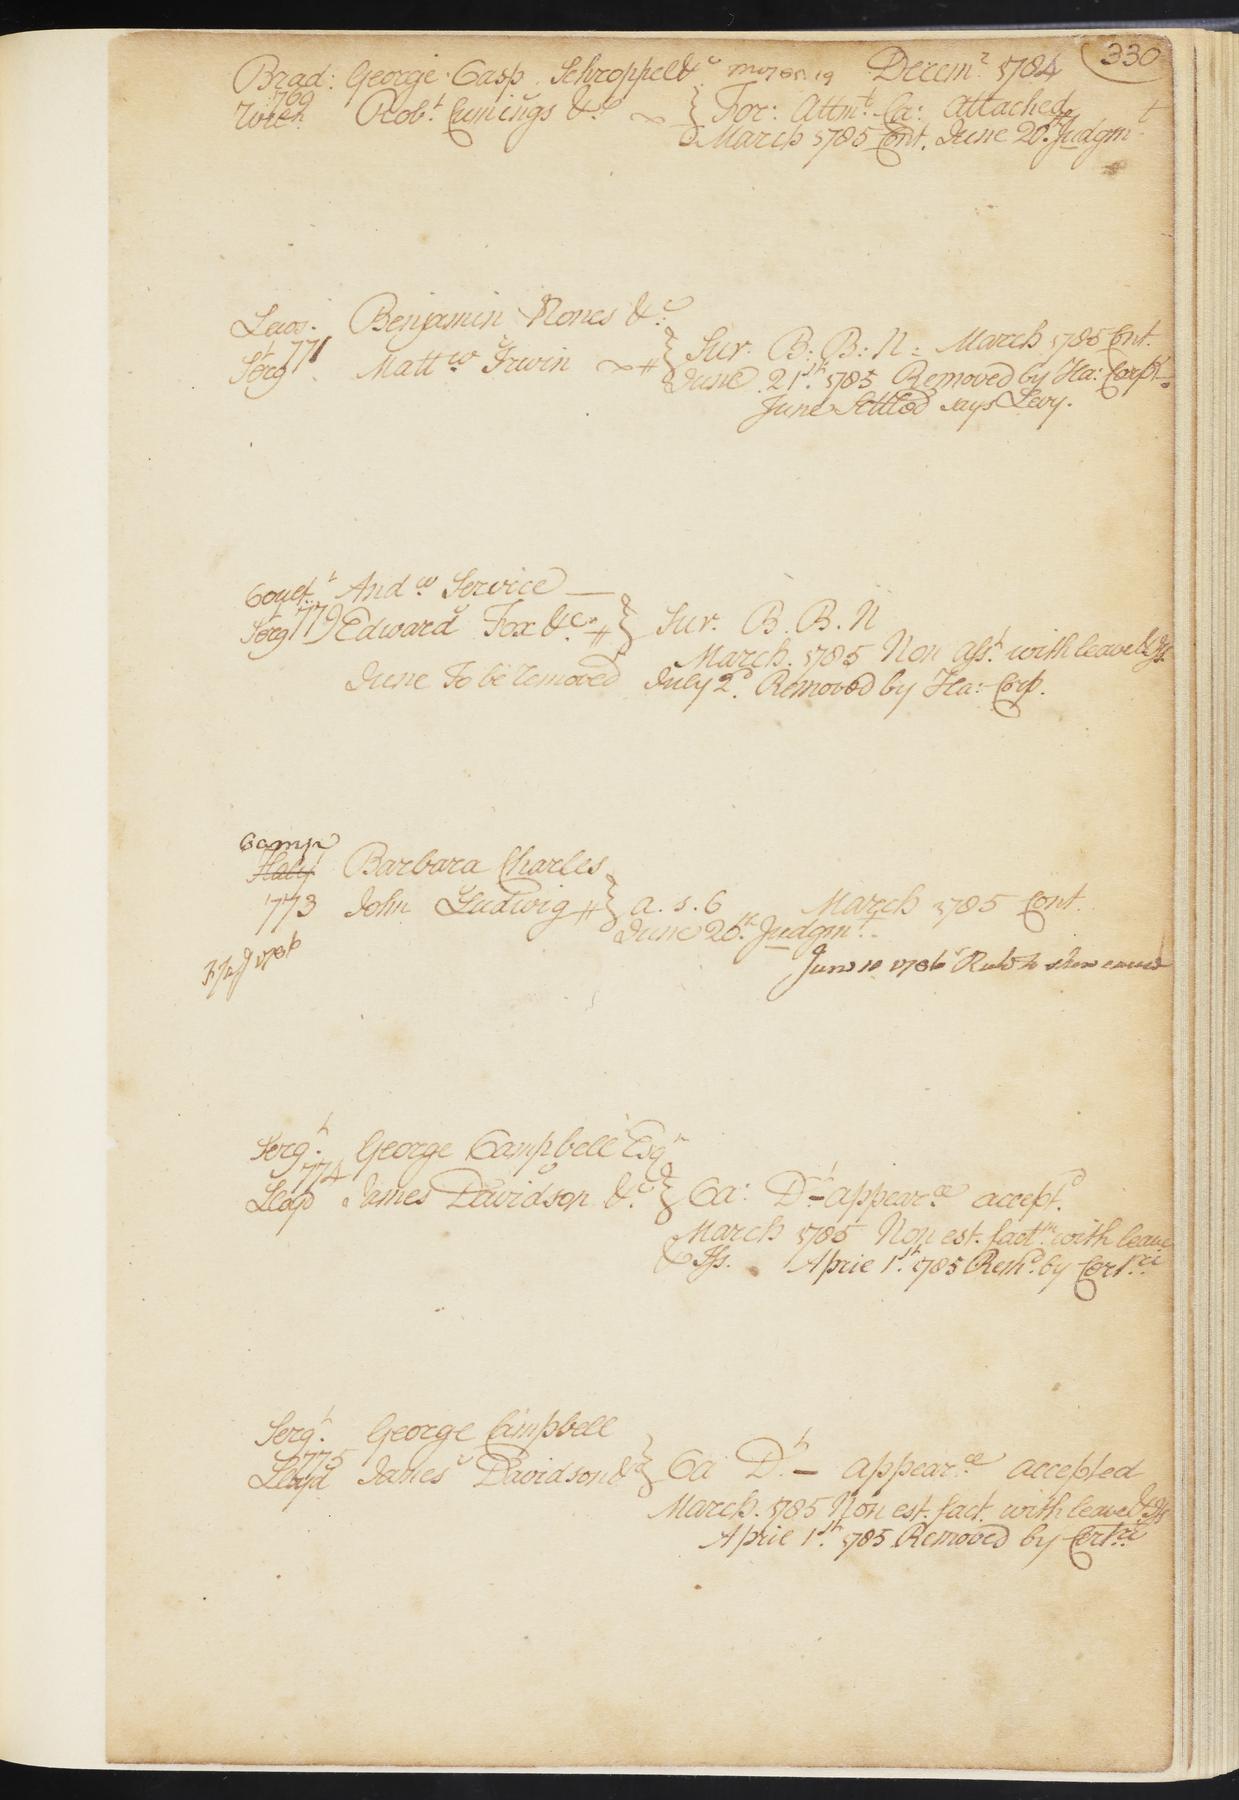 330
Brad: George Casp. Schroppel &c Decemr 1784
769 Robt Cunings &c } For: Attmt Ca: attached
March 1785 Cont. June 20th Judgmt
Levy. Benjamin Nones &c
Sergt 771 Mattw Irwin } Sur. B: B: N: March 1785 Cont.
June 21st 1785 Removed by Ha: Corps
June Settled says Levy.
Andw Service
Sergt 779 Edward Fox &c } Sur. B. B. N
March. 1785 Non Asst with leave &
June To be removed July 2d Removed by Ha: Corp.
Camp
Barbara Charles
773 John Ludwig } a. s. 6 March 1785 Cont.
June 20th Judgmt
1786
June 10 1786 Rule to shew cause
Sergt George Campbell Esqr
774
Lloyd James Davidson &c } Ca: Dt – appearce accept.d
March 1785 Non est. factm with leave
& Iss. April 1st 1785 Remd by Certri
Sergt George Campbell
775
Lloyd James Davidson & } Ca Dt – appearce accepted
March. 1785 Non est. fact. with leave & Iss
April 1st 1785 Removed by Certri